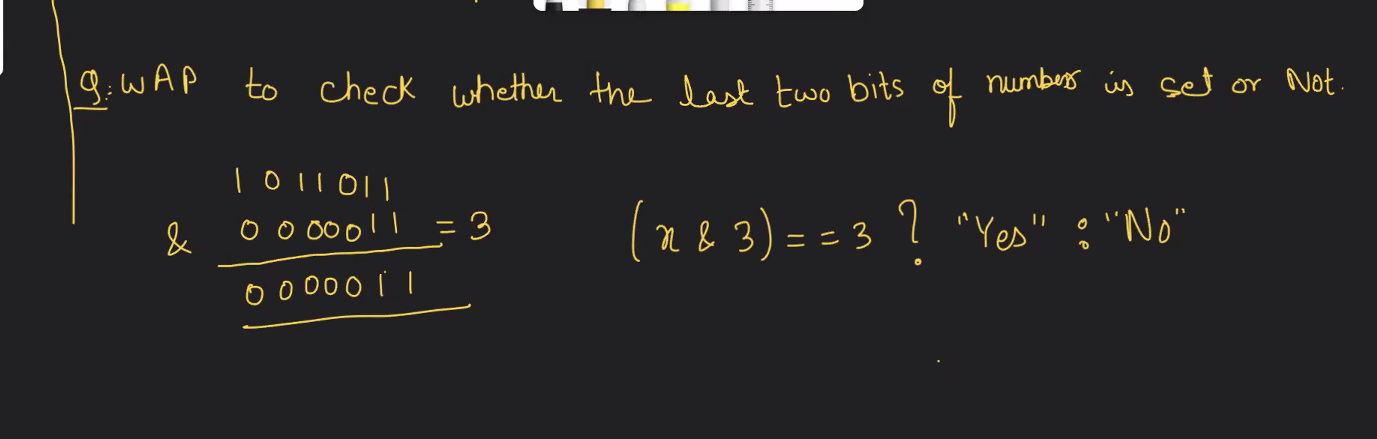 Q: WAP to check whether the last two bits of number is set or Not.
1 0 1 1 0 1 1
& 0 0 0 0 0 1 1 = 3
0 0 0 0 0 1 1
(x & 3) = = 3 ? "Yes" : "No"